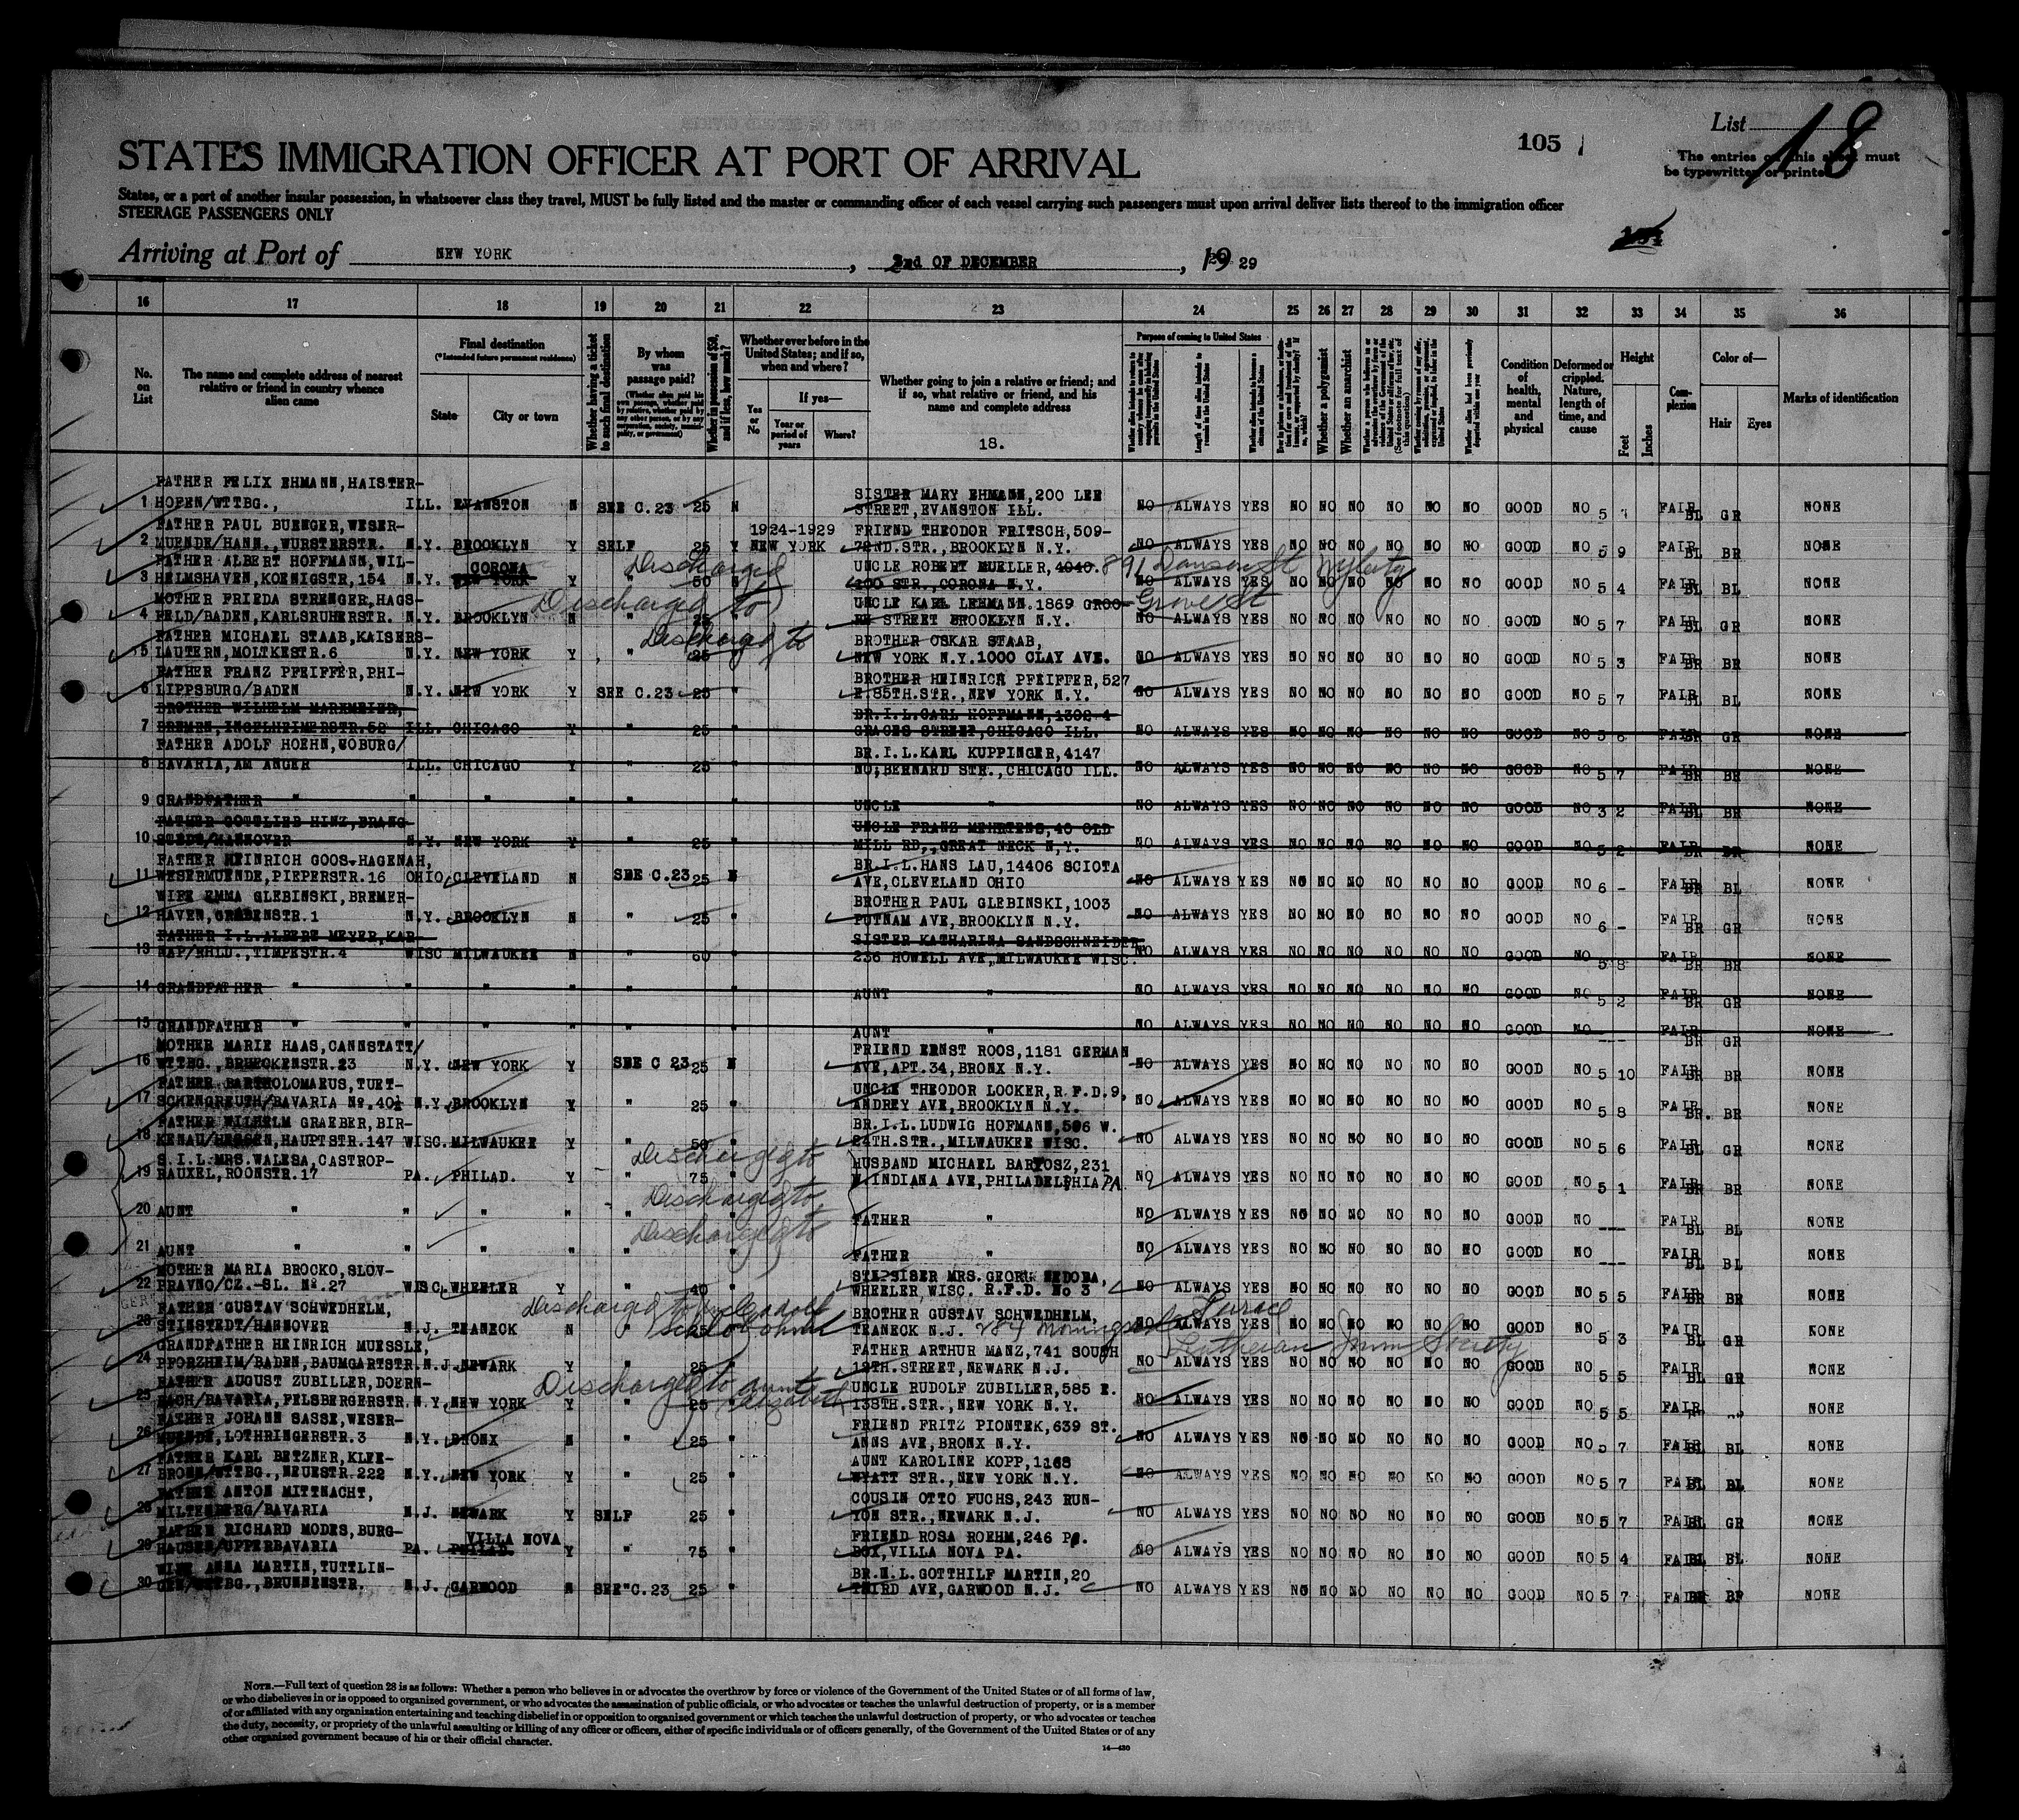 105
List 18
The entries on this sheet must
be typewritten or printed
STATES IMMIGRATION OFFICER AT PORT OF ARRIVAL
States, or a port of another insular possession, in whatsoever class they travel, MUST be fully listed and the master or commanding officer of each vessel carrying such passengers must upon arrival deliver lists thereof to the immigration officer
STEERAGE PASSENGERS ONLY
Arriving at Port of NEW YORK, 2nd OF DECEMBER, 19 29
16 17 18 19 20 21 22 23 24 25 26 27 28 29 30 31 32 33 34 35 36
No. on List
The name and complete address of nearest relative or friend in country whence alien came
Final destination
(*Intended future permanent residence)
State
City or town
Whether having a ticket to such final destination
By whom was passage paid?
Whether in possession of $50, and if less, how much?
Whether ever before in the United States; and if so, when and where?
Yes or No
If yes—
Year or period of years
Where?
Whether going to join a relative or friend; and if so, what relative or friend, and his name and complete address
18.
Purpose of coming to United States
Whether a polygamist
Whether an anarchist
Condition of health, mental and physical
Deformed or crippled. Nature, length of time, and cause
Height
Feet
Inches
Complexion
Color of—
Hair
Eyes
Marks of identification
FATHER FELIX EHMANN, HAISTER- SISTER MARY EHMANN, 200 LEE
1 HOFEN/WTTBG., ILL. EVANSTON N SEE C.23 25 N STREET, EVANSTON ILL. NO ALWAYS YES NO NO NO NO NO NO GOOD NO 5 FAIR BL GR NONE
FATHER PAUL BUENGER, WESER- 1924-1929 FRIEND THEODOR FRITSCH, 509-
2 MUENDE/HANN., WURSTERSTR. N.Y. BROOKLYN Y SELF 25 Y NEW YORK 72ND.STR., BROOKLYN N.Y. NO ALWAYS YES NO NO NO NO NO NO GOOD NO 5 9 FAIR BL BR NONE
FATHER ALBERT HOFFMANN, WIL- CORONA Discharged UNCLE ROBERT MUELLER, 4040. 891 Dawson St NY City
3 HELMSHAVEN, KOENIGSTR, 154 N.Y. NEW YORK Y " 50 N 100 STR., CORONA N.Y. NO ALWAYS YES NO NO NO NO NO NO GOOD NO 5 4 FAIR BL BL NONE
MOTHER FRIEDA STRENGER, HAGS- Discharged to UNCLE KARL LEHMANN. 1869 GROO- Grove St
4 FELD/BADEN, KARLSRUHERSTR. N.Y. BROOKLYN N " 25 " STREET BROOKLYN N.Y. NO ALWAYS YES NO NO NO NO NO NO GOOD NO 5 7 FAIR BL GR NONE
FATHER MICHAEL STAAB, KAISERS- Discharged to BROTHER OSKAR STAAB,
5 LAUTERN, MOLTKESTR.6 N.Y. NEW YORK Y " 25 " NEW YORK N.Y. 1000 CLAY AVE. NO ALWAYS YES NO NO NO NO NO NO GOOD NO 5 3 FAIR BR BR NONE
FATHER FRANZ PFEIFFER, PHI- BROTHER HEINRICH PFEIFFER, 527
6 LIPPSBURG/BADEN N.Y. NEW YORK Y SEE C.23 25 " E 85TH.STR., NEW YORK N.Y. NO ALWAYS YES NO NO NO NO NO NO GOOD NO 5 7 FAIR BL BL NONE
BROTHER WILHELM MARKMEIER, BR.I.L.CARL HOFFMANN, 1302
7 BREMEN, INGELHEIMERSTR.52 ILL. CHICAGO Y " 25 " GRACES STREET, CHICAGO ILL. NO ALWAYS YES NO NO NO NO NO NO GOOD NO 5 6 FAIR BR GR NONE
FATHER ADOLF HOEHN, COBURG/ BR.I.L.KARL KUPPINGER, 4147
8 BAVARIA, AM ANGER ILL. CHICAGO Y " 25 " NO; BERNARD STR., CHICAGO ILL. NO ALWAYS YES NO NO NO NO NO NO GOOD NO 5 7 FAIR BR BR NONE
9 GRANDFATHER " " " " " " UNCLE " NO ALWAYS YES NO NO NO NO NO NO GOOD NO 3 2 FAIR BL BR NONE
FATHER GOTTLIEB HINZ, BRANG- UNCLE FRANZ MEHRTENS, 40 OLD
10 STEDT/HANNOVER N.Y. NEW YORK Y " 25 " MILL RD., GREAT NECK N.Y. NO ALWAYS YES NO NO NO NO NO NO GOOD NO 5 2 FAIR BR BR NONE
FATHER HEINRICH GOOS-HAGENAH, BR.I.L.HANS LAU, 14406 SCIOTA
11 WESERMUENDE, PIEPERSTR.16 OHIO CLEVELAND N SEE C.23 25 N AVE, CLEVELAND OHIO NO ALWAYS YES NO NO NO NO NO NO GOOD NO 6 - FAIR BR BL NONE
WIFE EMMA GLEBINSKI, BREMER- BROTHER PAUL GLEBINSKI, 1003
12 HAVEN, GRABENSTR.1 N.Y. BROOKLYN N " 25 " PUTNAM AVE, BROOKLYN N.Y. NO ALWAYS YES NO NO NO NO NO NO GOOD NO 6 - FAIR BR GR NONE
FATHER I.L.ALBERT MEYER, KAR- SISTER KATHARINA SANDSCHNEIDER
13 NAP/RHLD., TIMPESTR.4 WISC MILWAUKEE N " 60 " 236 HOWELL AVE, MILWAUKEE WISC. NO ALWAYS YES NO NO NO NO NO NO GOOD NO 5 8 FAIR BR BR NONE
14 GRANDFATHER " AUNT " NO ALWAYS YES NO NO NO NO NO NO GOOD NO 5 2 FAIR BR GR NONE
15 GRANDFATHER " " " " " " AUNT " NO ALWAYS YES NO NO NO NO NO NO GOOD NO --- FAIR BR GR NONE
MOTHER MARIE HAAS, CANNSTATT/ FRIEND ERNST ROOS, 1181 GERMAN
16 WTTBG., BRUECKENSTR.23 N.Y. NEW YORK Y SEE C 23 25 N AVE, APT.34, BRONX N.Y. NO ALWAYS YES NO NO NO NO NO NO GOOD NO 5 10 FAIR BR BR NONE
FATHER BARTHOLOMAEUS, TUET- UNCLE THEODOR LOCKER, R.F.D.9,
17 SCHENGREUTH/BAVARIA No.40½ N.Y. BROOKLYN Y " 25 " ANDREY AVE, BROOKLYN N.Y. NO ALWAYS YES NO NO NO NO NO NO GOOD NO 5 8 FAIR BR. BR NONE
FATHER WILHELM GRAEBER, BIR- BR.I.L.LUDWIG HOFMANN, 506 W.
18 KENAU/HESSEN, HAUPTSTR.147 WISC. MILWAUKEE Y " 50 " 24TH.STR., MILWAUKEE WISC. NO ALWAYS YES NO NO NO NO NO NO GOOD NO 5 6 FAIR BL GR NONE
S.I.L.MRS.WALESA, CASTROP- Discharged to HUSBAND MICHAEL BARTOSZ, 231
19 RAUXEL, ROONSTR.17 PA. PHILAD. Y " 75 " INDIANA AVE, PHILADELPHIA PA NO ALWAYS YES NO NO NO NO NO NO GOOD NO 5 1 FAIR BR BR NONE
Discharged to
20 AUNT " " " " " " FATHER " NO ALWAYS YES NO NO NO NO NO NO GOOD NO --- FAIR BL BL NONE
Discharged to
21 AUNT " " " " " " FATHER " NO ALWAYS YES NO NO NO NO NO NO GOOD NO --- FAIR BL BL NONE
MOTHER MARIA BROCKO, SLOV- STEPSISER MRS.GEORG NEDOBA,
22 PRAVNO/CZ.-SL. No.27 WISC. WHEELER Y " 40 " WHEELER, WISC. R.F.D. No 3 NO ALWAYS YES NO NO NO NO NO NO GOOD NO 5 5 FAIR BR BR NONE
FATHER GUSTAV SCHWEDHELM, Discharged to BROTHER GUSTAV SCHWEDHELM, Terrace
23 STINSTEDT/HANNOVER N.J. TEANECK N " 25 " TEANECK N.J. 284 NO ALWAYS YES NO NO NO NO NO NO GOOD NO 5 3 FAIR BL GR NONE
GRANDFATHER HEINRICH MUESSLE, FATHER ARTHUR MANZ, 741 SOUTH Lutheran Imm Society
24 PFORZHEIM/BADEN, BAUMGARTSTR. N.J. NEWARK Y " 25 " 12TH.STREET, NEWARK N.J. NO ALWAYS YES NO NO NO NO NO NO GOOD NO 5 5 FAIR BL GR NONE
FATHER AUGUST ZUBILLER, DOERN- Discharged to aunt UNCLE RUDOLF ZUBILLER, 585 E.
25 BACH/BAVARIA, FELSBERGERSTR. N.Y. NEW YORK Y " 25 " 138TH.STR., NEW YORK N.Y. NO ALWAYS YES NO NO NO NO NO NO GOOD NO 5 5 FAIR NONE
FATHER JOHANN SASSE, WESER- FRIEND FRITZ PIONTEK, 639 ST.
26 MUENDE, LOTHRINGERSTR.3 N.Y. BRONX N " 25 " ANNS AVE, BRONX N.Y. NO ALWAYS YES NO NO NO NO NO NO GOOD NO 5 7 FAIR BL BL NONE
FATHER KARL BETZNER, KLEE- AUNT KAROLINE KOPP, 1168
27 BRONN/WTTBG., NEUESTR.222 N.Y. NEW YORK Y " 25 " WYATT STR., NEW YORK N.Y. NO ALWAYS YES NO NO NO NO NO NO GOOD NO 5 7 FAIR BL BL NONE
FATHER ANTON MITTNACHT, COUSIN OTTO FUCHS, 243 RUN-
28 MILTENBERG/BAVARIA N.J. NEWARK Y SELF 25 " YON STR., NEWARK N.J. NO ALWAYS YES NO NO NO NO NO NO GOOD NO 5 7 FAIR BL GR NONE
FATHER RICHARD MODES, BURG- VILLA NOVA FRIEND ROSA ROEHM, 246 P.
29 HAUSEN/UPPERBAVARIA PA. PHILAD. Y " 75 " BOX, VILLA NOVA PA. NO ALWAYS YES NO NO NO NO NO NO GOOD NO 5 4 FAIR BL BL NONE
WIFE ANNA MARTIN, TUTTLIN- BR.N.L.GOTTHILF MARTIN, 20
30 GEN/WTTBG., BRUNNENSTR. N.J. GARWOOD N SEE C.23 25 " THIRD AVE, GARWOOD N.J. NO ALWAYS YES NO NO NO NO NO NO GOOD NO 5 7 FAIR BR BR NONE
NOTE.—Full text of question 28 is as follows: Whether a person who believes in or advocates the overthrow by force or violence of the Government of the United States or of all forms of law,
or who disbelieves in or is opposed to organized government, or who advocates the assassination of public officials, or who advocates or teaches the unlawful destruction of property, or is a member
of or affiliated with any organization entertaining and teaching disbelief in or opposition to organized government or which teaches the unlawful destruction of property, or who advocates or teaches
the duty, necessity, or propriety of the unlawful assaulting or killing of any officer or officers, either of specific individuals or of officers generally, of the Government of the United States or of any
other organized government because of his or their official character.
14—430